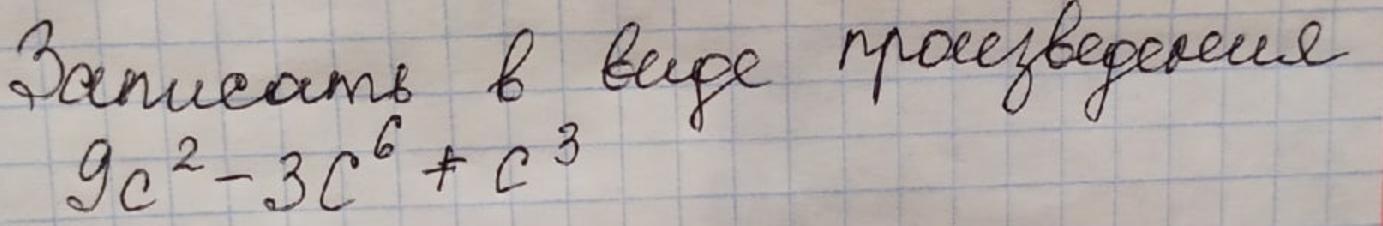 Записать в виде произведения
9c² - 3c⁶ + c³